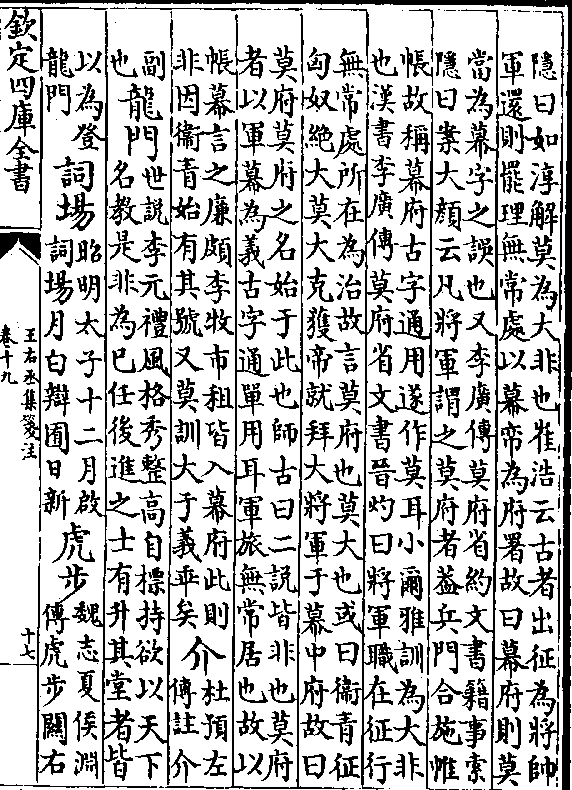 隱曰如淳解莫為大非也崔浩云古者出征為將帥
軍還則罷理無常處以幕帟為府署故曰幕府則莫
當為幕字之誤也又李廣傳莫府省約文書籍事索
隱曰案大顏云凡將軍謂之莫府者蓋兵門合施帷
帳故稱幕府古字通用遂作莫耳小爾雅訓為大非
也漢書李廣傳莫府省文書晉灼曰將軍職在征行
無常處所在為治故言莫府也莫大也或曰衞青征
匈奴絶大莫大克獲帝就拜大將軍于幕中府故曰
莫府莫府之名始于此也師古曰二説皆非也莫府
者以軍幕為義古字通單用耳軍旅無常居也故以
帳幕言之廉頗李牧市租皆入幕府此則
非因衞青始有其號又莫訓大于義乖矣
介
杜預左
傳註介
副
也
龍門
世説李元禮風格秀整高自標持欲以天下
名教是非為已任後進之士有升其堂者皆
以為登
龍門
詞場
昭明太子十二月啟
詞場月白辯囿日新
虎步
魏志夏侯淵
傳虎步關右
欽定四庫全書
王右丞集箋注
卷十九
十七